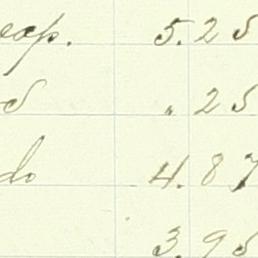 exp. 5.25
" 25
do 4.87
3.95